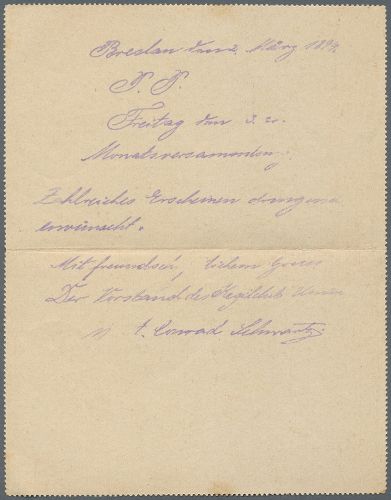 Breslau den 2. März 189
P. P.
Freitag den 3. cr.
Monatsversammlung.
Zahlreiches Erscheinen dringend
erwünscht.
Mit freundschaftlichem Gruss
Der Vorstand des Kegelclub
Conrad Schwartz.